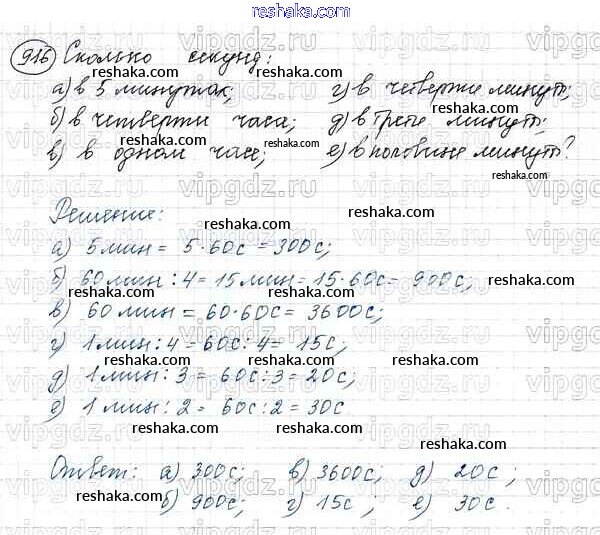 reshaka.com
916 Сколько секунд:
а) в 5 минутах; г) в четверти минуты;
б) в четверти часа; д) в трети минуты;
в) в одном часе; е) в половине минуты?
Решение:
а) 5 мин = 5·60с = 300с;
б) 60 мин : 4 = 15 мин = 15·60с = 900с;
в) 60 мин = 60·60с = 3600с;
г) 1 мин : 4 = 60с : 4 = 15с;
д) 1 мин : 3 = 60с : 3 = 20с;
е) 1 мин : 2 = 60с : 2 = 30с
Ответ: а) 300с; в) 3600с; д) 20с;
б) 900с; г) 15с; е) 30с.